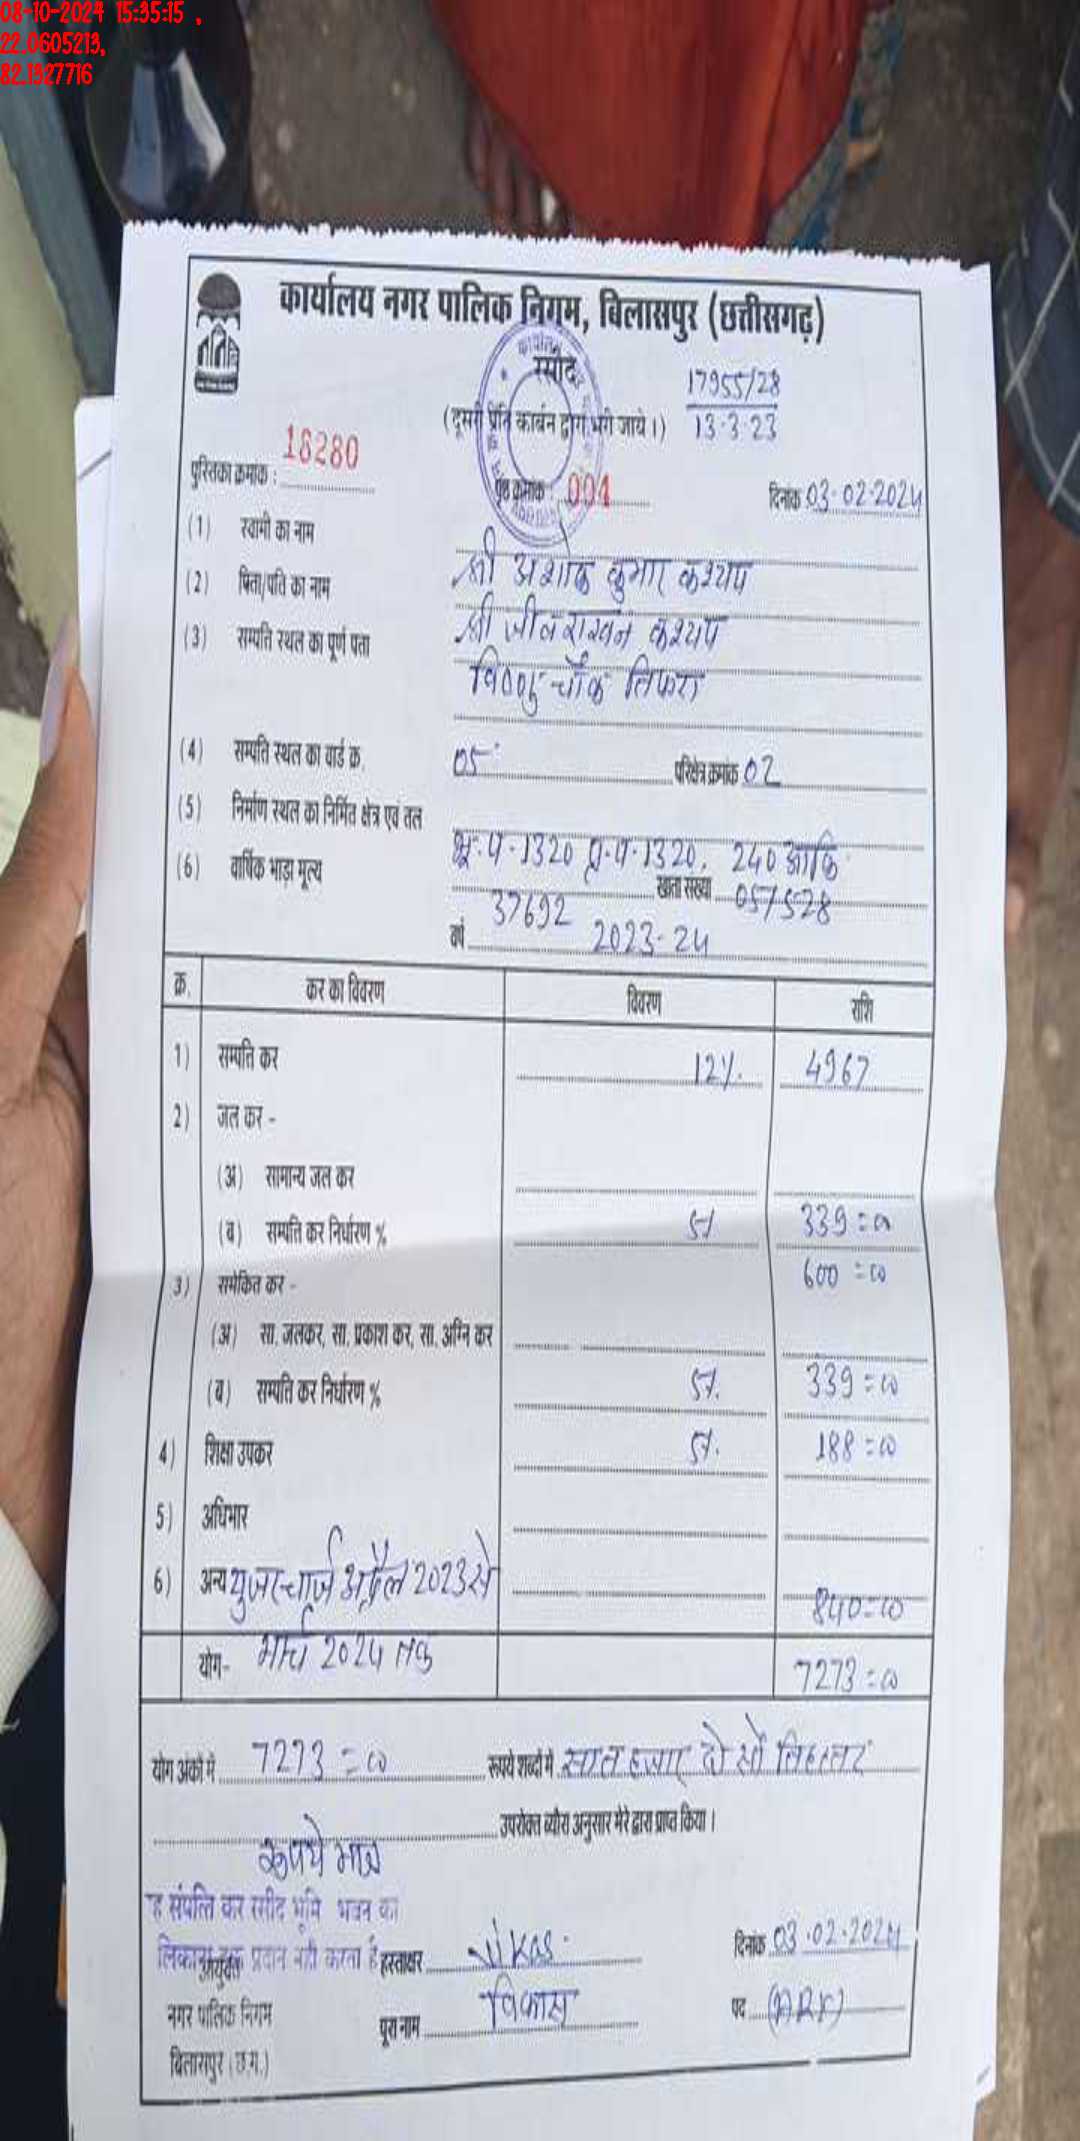 08-10-2024 15:35:15 ,
22.0605213,
82.1327716
कार्यालय नगर पालिक निगम, बिलासपुर (छत्तीसगढ़)
रसीद
17955/28
13-3-23
(दूसरी प्रति कार्बन द्वारा भरी जाये।)
पुस्तिका क्रमांक : 18280
पृष्ठ क्रमांक : 004
दिनांक 03-02-2024
(1) स्वामी का नाम श्री अशोक कुमार कश्यप
(2) पिता/पति का नाम श्री जीवराखन कश्यप
(3) सम्पति स्थल का पूर्ण पता विष्णु चौक तिफरा
(4) सम्पति स्थल का वार्ड क्र. 05 परिक्षेत्र क्रमांक 02
(5) निर्माण स्थल का निर्मित क्षेत्र एवं तल भू.प.1320 प्र.प.1320, 240
(6) वार्षिक भाड़ा मूल्य 37692 खाता संख्या 057528
वर्ष 2023-24
क्र. कर का विवरण विवरण राशि
1) सम्पति कर 12% 4967
2) जल कर -
(अ) सामान्य जल कर
(ब) सम्पत्ति कर निर्धारण % 5% 339=00
3) समेकित कर - 600=00
(अ) सा. जलकर, सा. प्रकाश कर, सा. अग्नि कर
(ब) सम्पति कर निर्धारण % 5% 339=00
4) शिक्षा उपकर 5% 188=00
5) अधिभार
6) अन्य युजरचार्ज अप्रैल 2023 से 840=00
मार्च 2024 तक
योग- 7273=00
योग अंको में 7273=00 रूपये शब्दों में सात हजार दो सौ तिहत्तर
उपरोक्त ब्यौरा अनुसार मेरे द्वारा प्राप्त किया ।
रूपये मात्र
ह संपत्ति कर रसीद भूमि भवन का
लिकाना हक प्रदान नही करता है
आयुक्त
नगर पालिक निगम
बिलासपुर (छ.ग.)
हस्ताक्षर Vikas
दिनांक 03.02.2024
पूरा नाम विकास
पद (ARI)